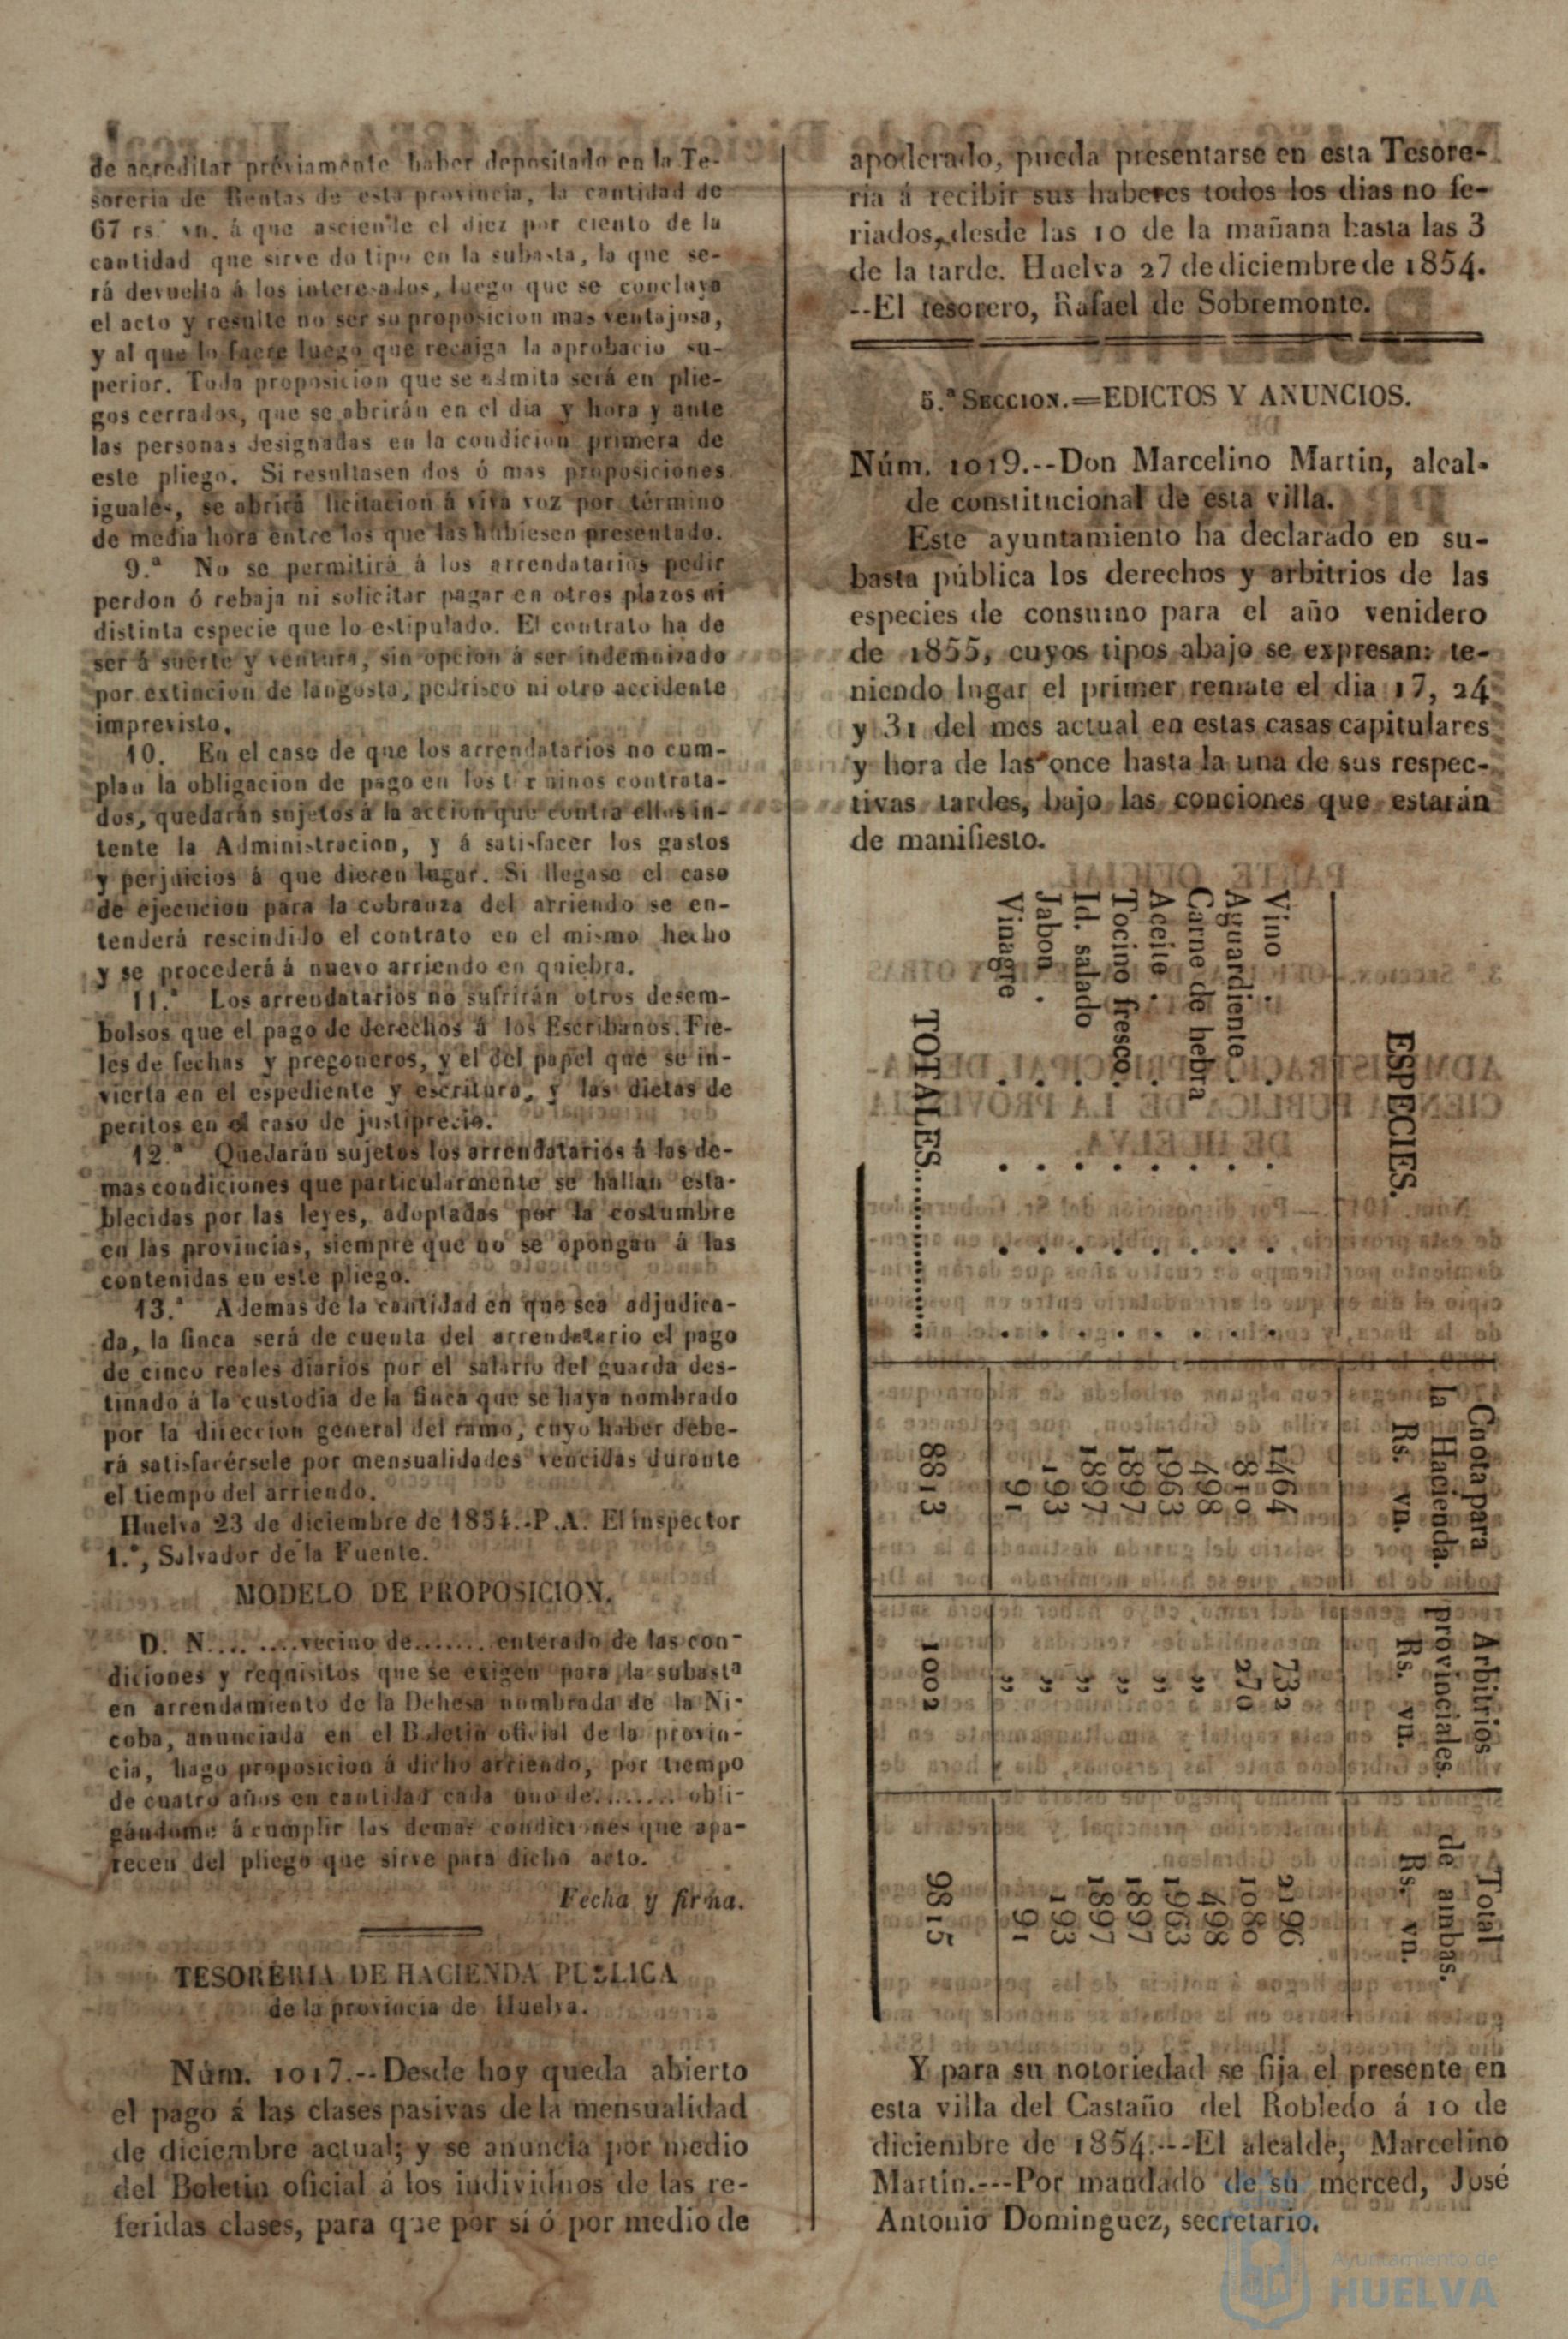 de acreditar préviamente haber depositado en la Te-
soreria de Rentas de esta provincia, la cantidad de
67 rs. vn. á que asciende el diez por ciento de la
cantidad que sirve de tipo en la subasta, la que se-
rá devuelta á los interesados, luego que se concluya
el acto y resulte no ser su proposicion mas ventajosa,
y al que lo fuere luego que recaiga la aprobacio su-
perior. Toda proposicion que se admita será en plie-
gos cerrados, que se abrirán en el dia y hora y ante
las personas designadas en la condicion primera de
este pliego. Si resultasen dos ó mas proposiciones
iguales, se abrirá licitacion á viva voz por término
de media hora entre los que las hubiesen presentado.
9.ª No se permitirá á los arrendatarios pedir
perdon ó rebaja ni solicitar pagar en otros plazos ni
distinta especie que lo estipulado. El contrato ha de
ser á suerte y ventura, sin opcion á ser indemnizado
por extincion de langosta, pedrisco ni otro accidente
imprevisto.
10. En el caso de que los arrendatarios no cum-
plan la obligacion de pago en los terminos contrata-
dos, quedarán sujetos á la accion que contra ellos in-
tente la Administracion, y á satisfacer los gastos
y perjuicios á que dieren lugar. Si llegase el caso
de ejecucion para la cobranza del arriendo se en-
tenderá rescindido el contrato en el mismo hecho
y se procederá á nuevo arriendo en quiebra.
11.ª Los arrendatarios no sufrirán otros desem-
bolsos que el pago de derechos á los Escribanos. Fie-
les de fechas y pregoneros, y el del papel que se in-
vierta en el espediente y escritura, y las dietas de
peritos en el caso de justiprecio.
12.ª Quedarán sujetos los arrendatarios á las de-
mas condiciones que particularmente se hallan esta-
blecidas por las leyes, adoptadas por la costumbre
en las provincias, siempre que no se opongan á las
contenidas en este pliego.
13.ª Ademas de la cantidad en que sea adjudica-
da, la finca será de cuenta del arrendatario el pago
de cinco reales diarios por el salario del guarda des-
tinado á la custodia de la finca que se haya nombrado
por la direccion general del ramo, cuyo haber debe-
rá satisfacérsele por mensualidades vencidas durante
el tiempo del arriendo.
Huelva 23 de diciembre de 1854.-P.A. El inspector
1.º, Salvador de la Fuente.
MODELO DE PROPOSICION.
D. N.... ....vecino de....... enterado de las con-
diciones y requisitos que se exigen para la subasta
en arrendamiento de la Dehesa nombrada de la Ni-
coba, anunciada en el Boletin oficial de la provin-
cia, hago proposicion á dicho arriendo, por tiempo
de cuatro años en cantidad cada uno de........ obli-
gándome á cumplir las demas condiciones que apa-
recen del pliego que sirve para dicho acto.
Fecha y firma.
TESORERIA DE HACIENDA PUBLICA
de la provincia de Huelva.
Núm. 1017.--Desde hoy queda abierto
el pago á las clases pasivas de la mensualidad
de diciembre actual; y se anuncia por medio
del Boletin oficial á los individuos de las re-
feridas clases, para que por si ó por medio de
apoderado, pueda presentarse en esta Tesore-
ria á recibir sus haberes todos los dias no fe-
riados, desde las 10 de la mañana hasta las 3
de la tarde. Huelva 27 de diciembre de 1854.
--El tesorero, Rafael de Sobremonte.
5.ª SECCION.=EDICTOS Y ANUNCIOS.
Núm. 1019.--Don Marcelino Martin, alcal-
de constitucional de esta villa.
Este ayuntamiento ha declarado en su-
basta pública los derechos y arbitrios de las
especies de consumo para el año venidero
de 1855, cuyos tipos abajo se expresan: te-
niendo lugar el primer remate el dia 17, 24
y 31 del mes actual en estas casas capitulares
y hora de las once hasta la una de sus respec-
tivas tardes, bajo las conciones que estarán
de manifiesto.
ESPECIES. Cuota para la Hacienda. Rs. vn. Arbitrios provinciales. Rs. vn. Total de ambas. Rs. vn.
Vino . . . . . 1464 732 2196
Aguardiente . . . . 810 270 1080
Carne de hebra . . . 498 » 498
Aceite . . . . . 1963 » 1963
Tocino fresco. . . . 1897 » 1897
Id. salado . . . . 1897 » 1897
Jabon . . . . . 193 » 193
Vinagre . . . . 91 » 91
TOTALES................ 8813 1002 9815
Y para su notoriedad se fija el presente en
esta villa del Castaño del Robledo á 10 de
diciembre de 1854.---El alcalde, Marcelino
Martin.---Por mandado de su merced, José
Antonio Dominguez, secretario.
Ayuntamiento de
HUELVA